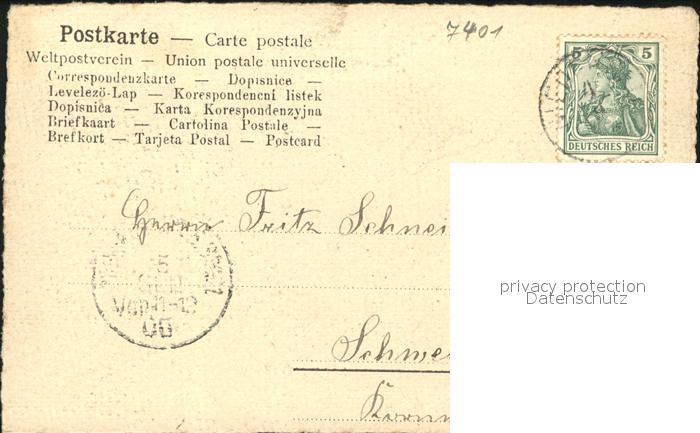 7401
Postkarte — Carte postale
Weltpostverein — Union postale universelle
Correspondenzkarte — Dopisnice —
Levelező-Lap — Korespondenční listek
Dopisnica — Karta Korespondenzyjna
Briefkaart — Cartolina Postale —
Brefkort — Tarjeta Postal — Postcard
5 5
DEUTSCHES REICH
Herrn Fritz Schnei
privacy protection
Datenschutz
Schwe